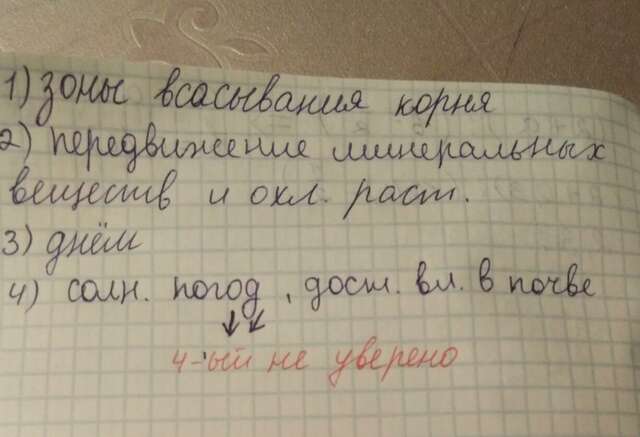 1) зоны всасывания корня
2) передвижение минеральных
веществ и охл. раст.
3) днём
4) солн. погод, дост. вл. в почве
4-ый не уверено